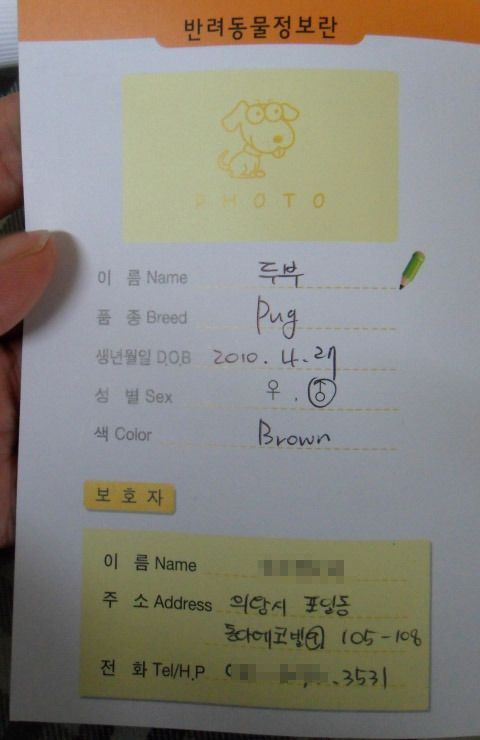 반려동물정보란
PHOTO
이 름 Name 두부
품 종 Breed Pug
생년월일 D.O.B 2010. 4. 27
성 별 Sex ♀ . ♂
색 Color Brown
보 호 자
이 름 Name
주 소 Address 의왕시 포일동
동아에코빌(아) 105-108
전 화 Tel/H.P 3531